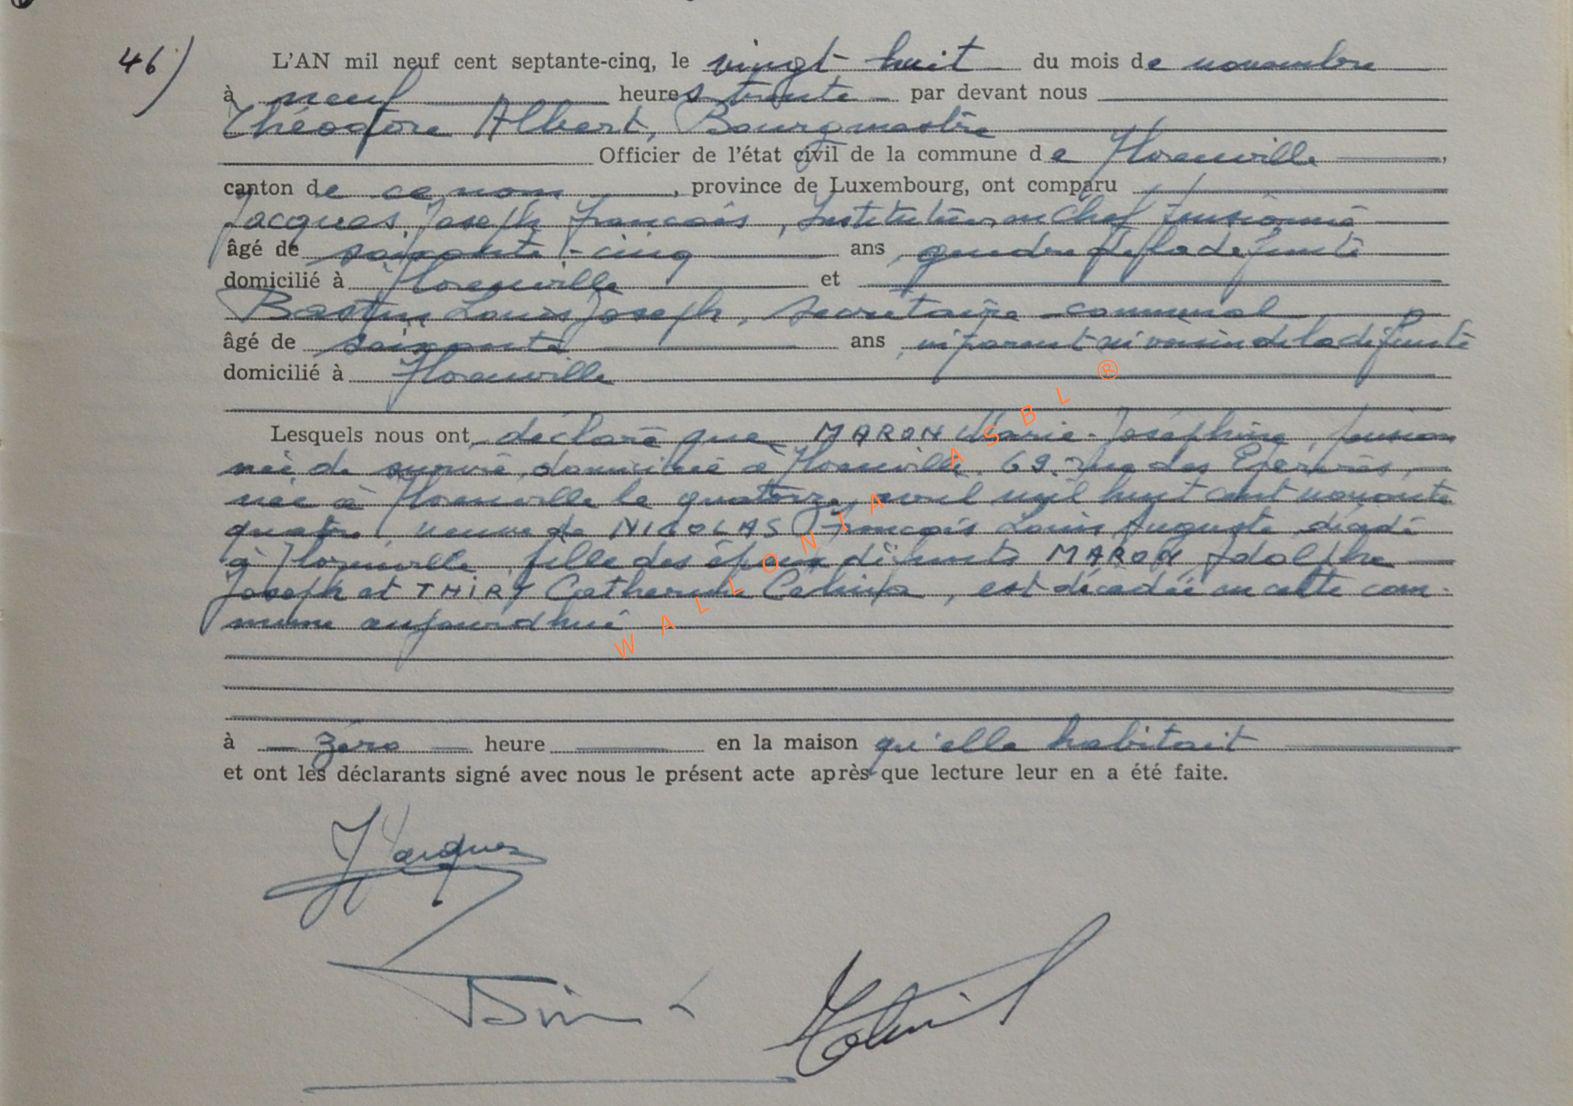 46)
L'AN mil neuf cent septante-cinq, le vingt huit du mois de novembre
à neuf heures trente par devant nous
Théodore Albert, Bourgmestre
Officier de l'état civil de la commune de Florenville,
canton de ce nom, province de Luxembourg, ont comparu
Jacques Joseph François, Instituteur en Chef pensionné
âgé de soixante-cinq ans gendre de la défunte
domicilié à Florenville et
Bastin Louis Joseph, secrétaire communal
âgé de soixante ans, ni parent ni voisin de la défunte
domicilié à Florenville
Lesquels nous ont déclaré que MARON Marie-Joséphine, pension
née de survie, domiciliée à Florenville, 69, rue des Epérires,
née à Florenville le quatorze avril mil huit cent nonante
quatre, veuve de NICOLAS François Louis Auguste décédé
à Florenville, fille des époux défunts MARON Adolphe
Joseph et THIRY Catherine, est décédée en cette com-
mune aujourd'hui
à zéro heure en la maison qu'elle habitait
et ont les déclarants signé avec nous le présent acte après que lecture leur en a été faite.
WALLONIA ASBL ®
JJacques